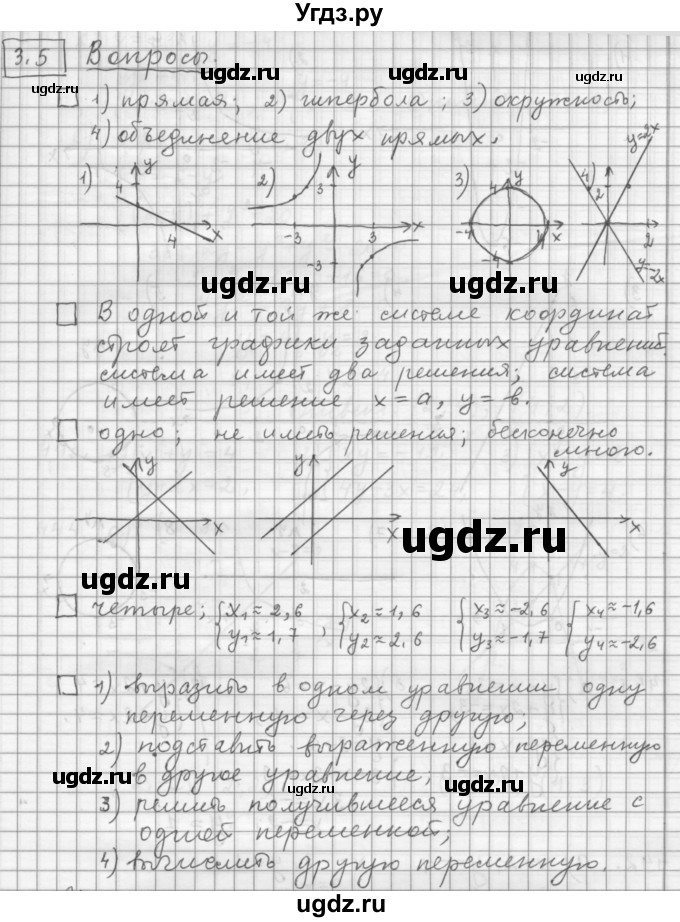 Угдз.ру
3.5 Вопросы.
1) прямая; 2) гипербола; 3) окружность;
4) объединение двух прямых.
1) y 4 4 x
2) y 3 -3 3 x -3
3) 4 y -4 4 x -4
4) 2 2 y=2x y=-2x
ugdz.ru ugdz.ru
В одной и той же системе координат
строят графики заданных уравнений.
система имеет два решения; система
имеет решение x=a, y=в.
одно; не иметь решения; бесконечно
много.
y x y x y x
ugdz.ru
ugdz.ru
четыре; { x₁≈2,6 y₁≈1,7 , { x₂≈1,6 y₂≈2,6 { x₃≈-2,6 y₃≈-1,7 { x₄≈-1,6 y₄≈-2,6
1) выразить в одном уравнении одну
переменную через другую;
2) подставить выраженную переменную
в другое уравнение;
3) решить получившееся уравнение с
одной переменной;
4) вычислить другую переменную.
ugdz.ru
ugdz.ru
ugdz.ru
ugdz.ru
ugdz.ru
ugdz.ru
ugdz.ru
ugdz.ru
ugdz.ru
ugdz.ru
ugdz.ru
ugdz.ru
Угдз.ру